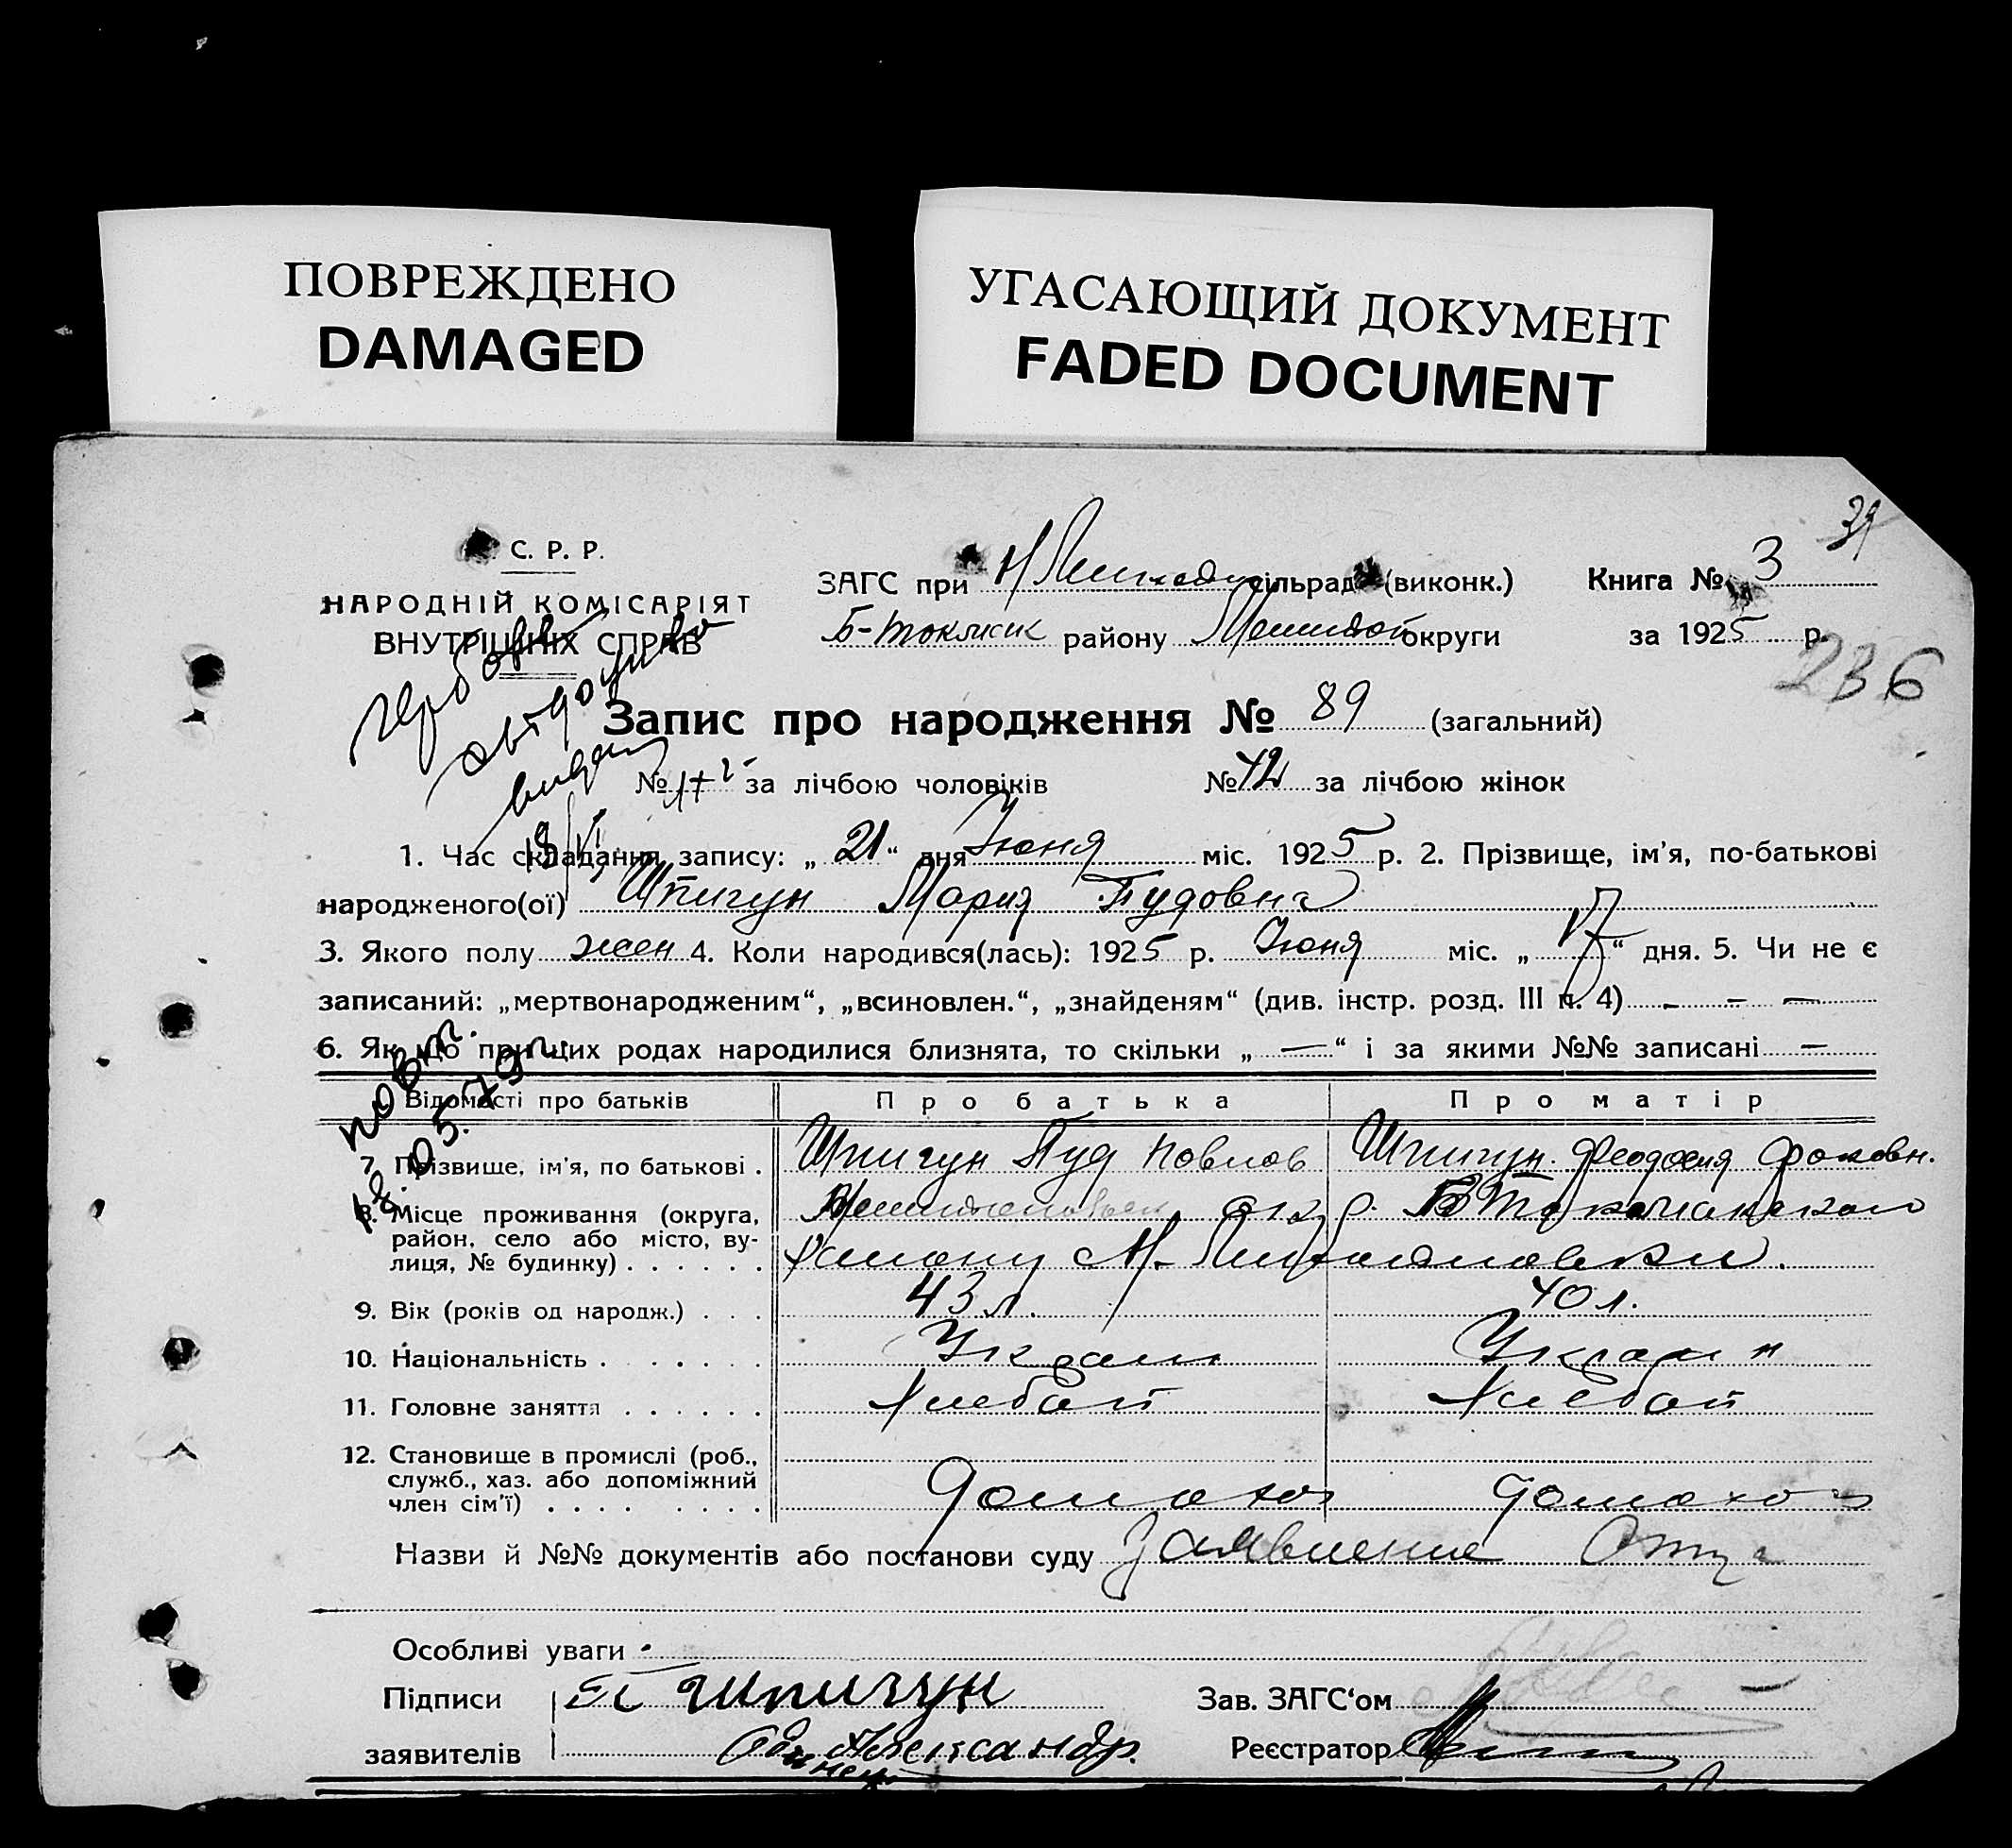 ПОВРЕЖДЕНО
DAMAGED
УГАСАЮЩИЙ ДОКУМЕНТ
FADED DOCUMENT
39
С. Р. Р.
НАРОДНІЙ КОМІСАРІЯТ
ВНУТРІШНІХ СПРАВ
ЗАГС при сільради (виконк.) Книга № 3
Б-Токмак району округи за 1925 р.
236
Запис про народження № 89 (загальний)
№ 47 за лічбою чоловіків № 42 за лічбою жінок
1. Час складання запису: „ 21 “ дня Июня міс. 1925 р. 2. Прізвище, ім’я, по-батькові
народженого(ої) Шпигун Мария Пудовна
3. Якого полу жен 4. Коли народився(лась): 1925 р. Июня міс. „ 17 “ дня. 5. Чи не є
записаний: „мертвонародженим“, „всиновлен.“, „знайденям“ (див. інстр. розд. III п. 4) - – —
6. Як що при цих родах народилися близнята, то скільки „ — “ і за якими №№ записані —
повт.
18.05.79г.
Відомості про батьків Про батька Про матір
7. Прізвище, ім’я, по батькові . Шпигун Пуд Повлов Шпигун Феодосия Фоковн.
8. Місце проживання (округа,
район, село або місто, ву-
лиця, № будинку) . . . . . .
окр. Б Токмакского
9. Вік (років од народж.) . . . 43 л. 40 л.
10. Національність . . . . . . . Украин Украин
11. Головне заняття . . . . . . Хлебоп Хлебоп
12. Становище в промислі (роб.,
служб., хаз. або допоміжний
член сім’ї) . . . . . . . . домохоз домохоз
Назви й №№ документів або постанови суду Заявление Отца
Особливі уваги
Підписи Шпигун Зав. ЗАГС‘ом
заявителів Александр. Реєстратор